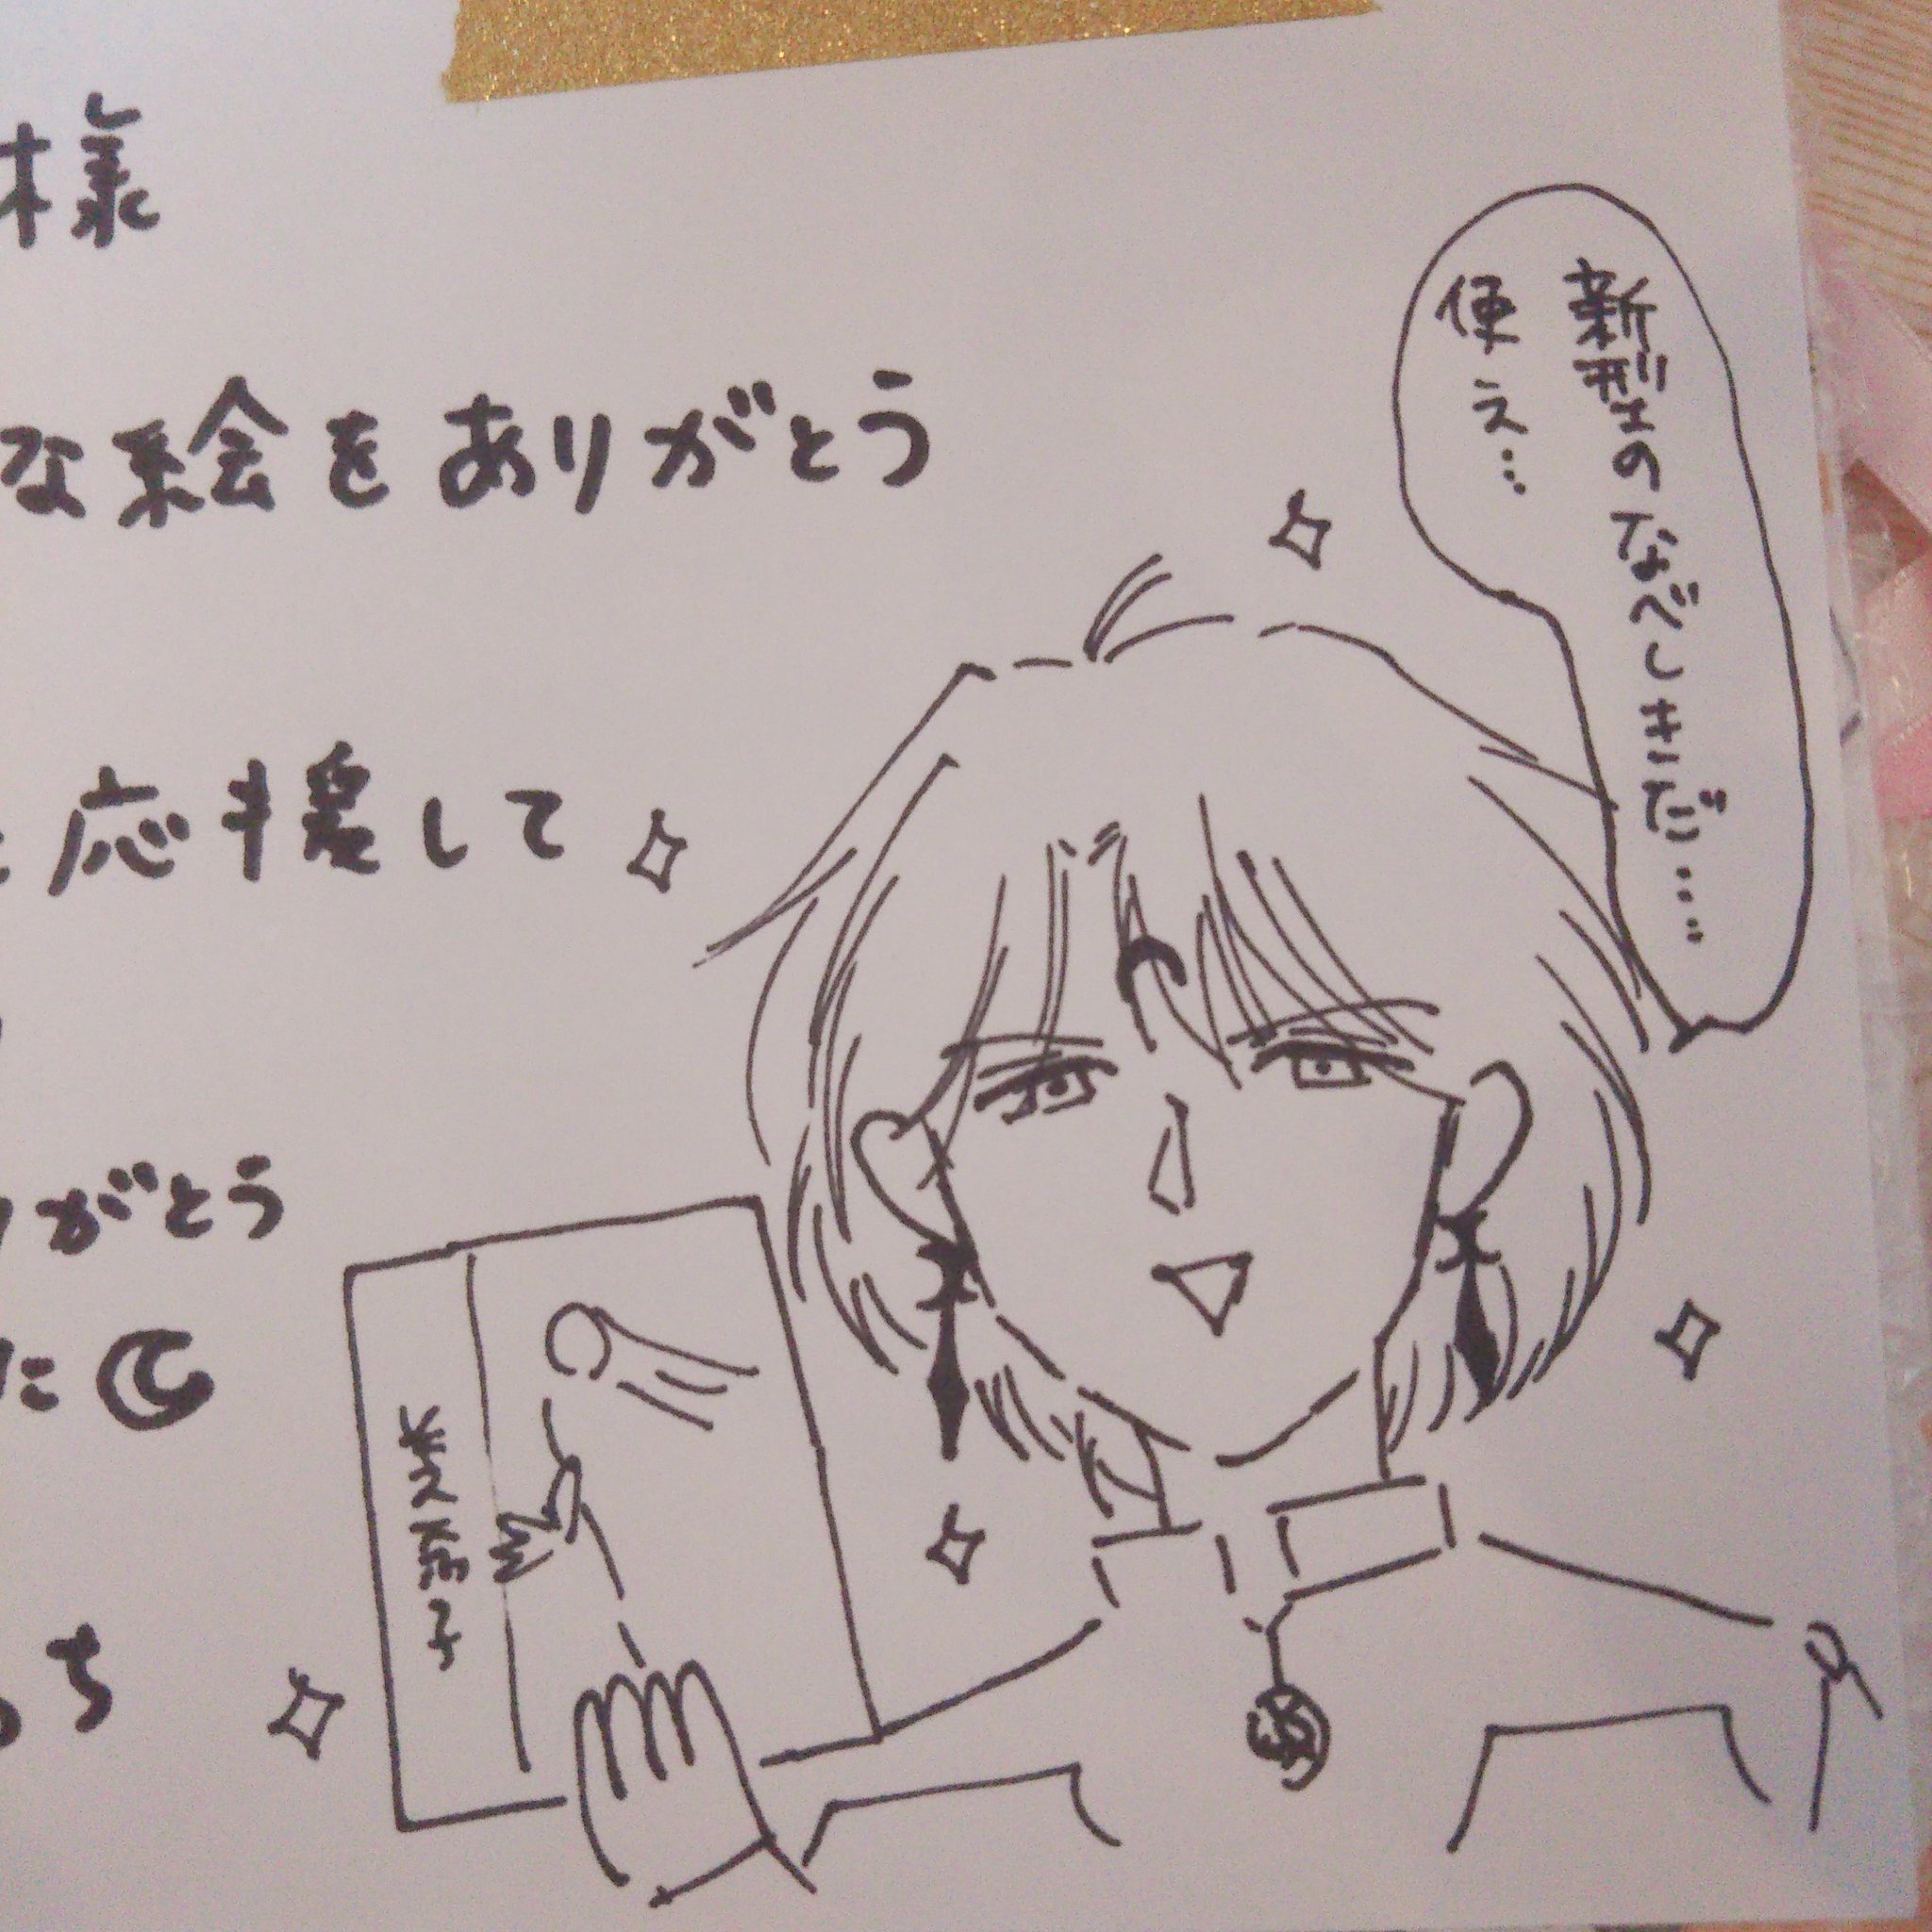 様
な絵をありがとう
応援して
がとう
に
ち
新型のなべしきだ……
使え…